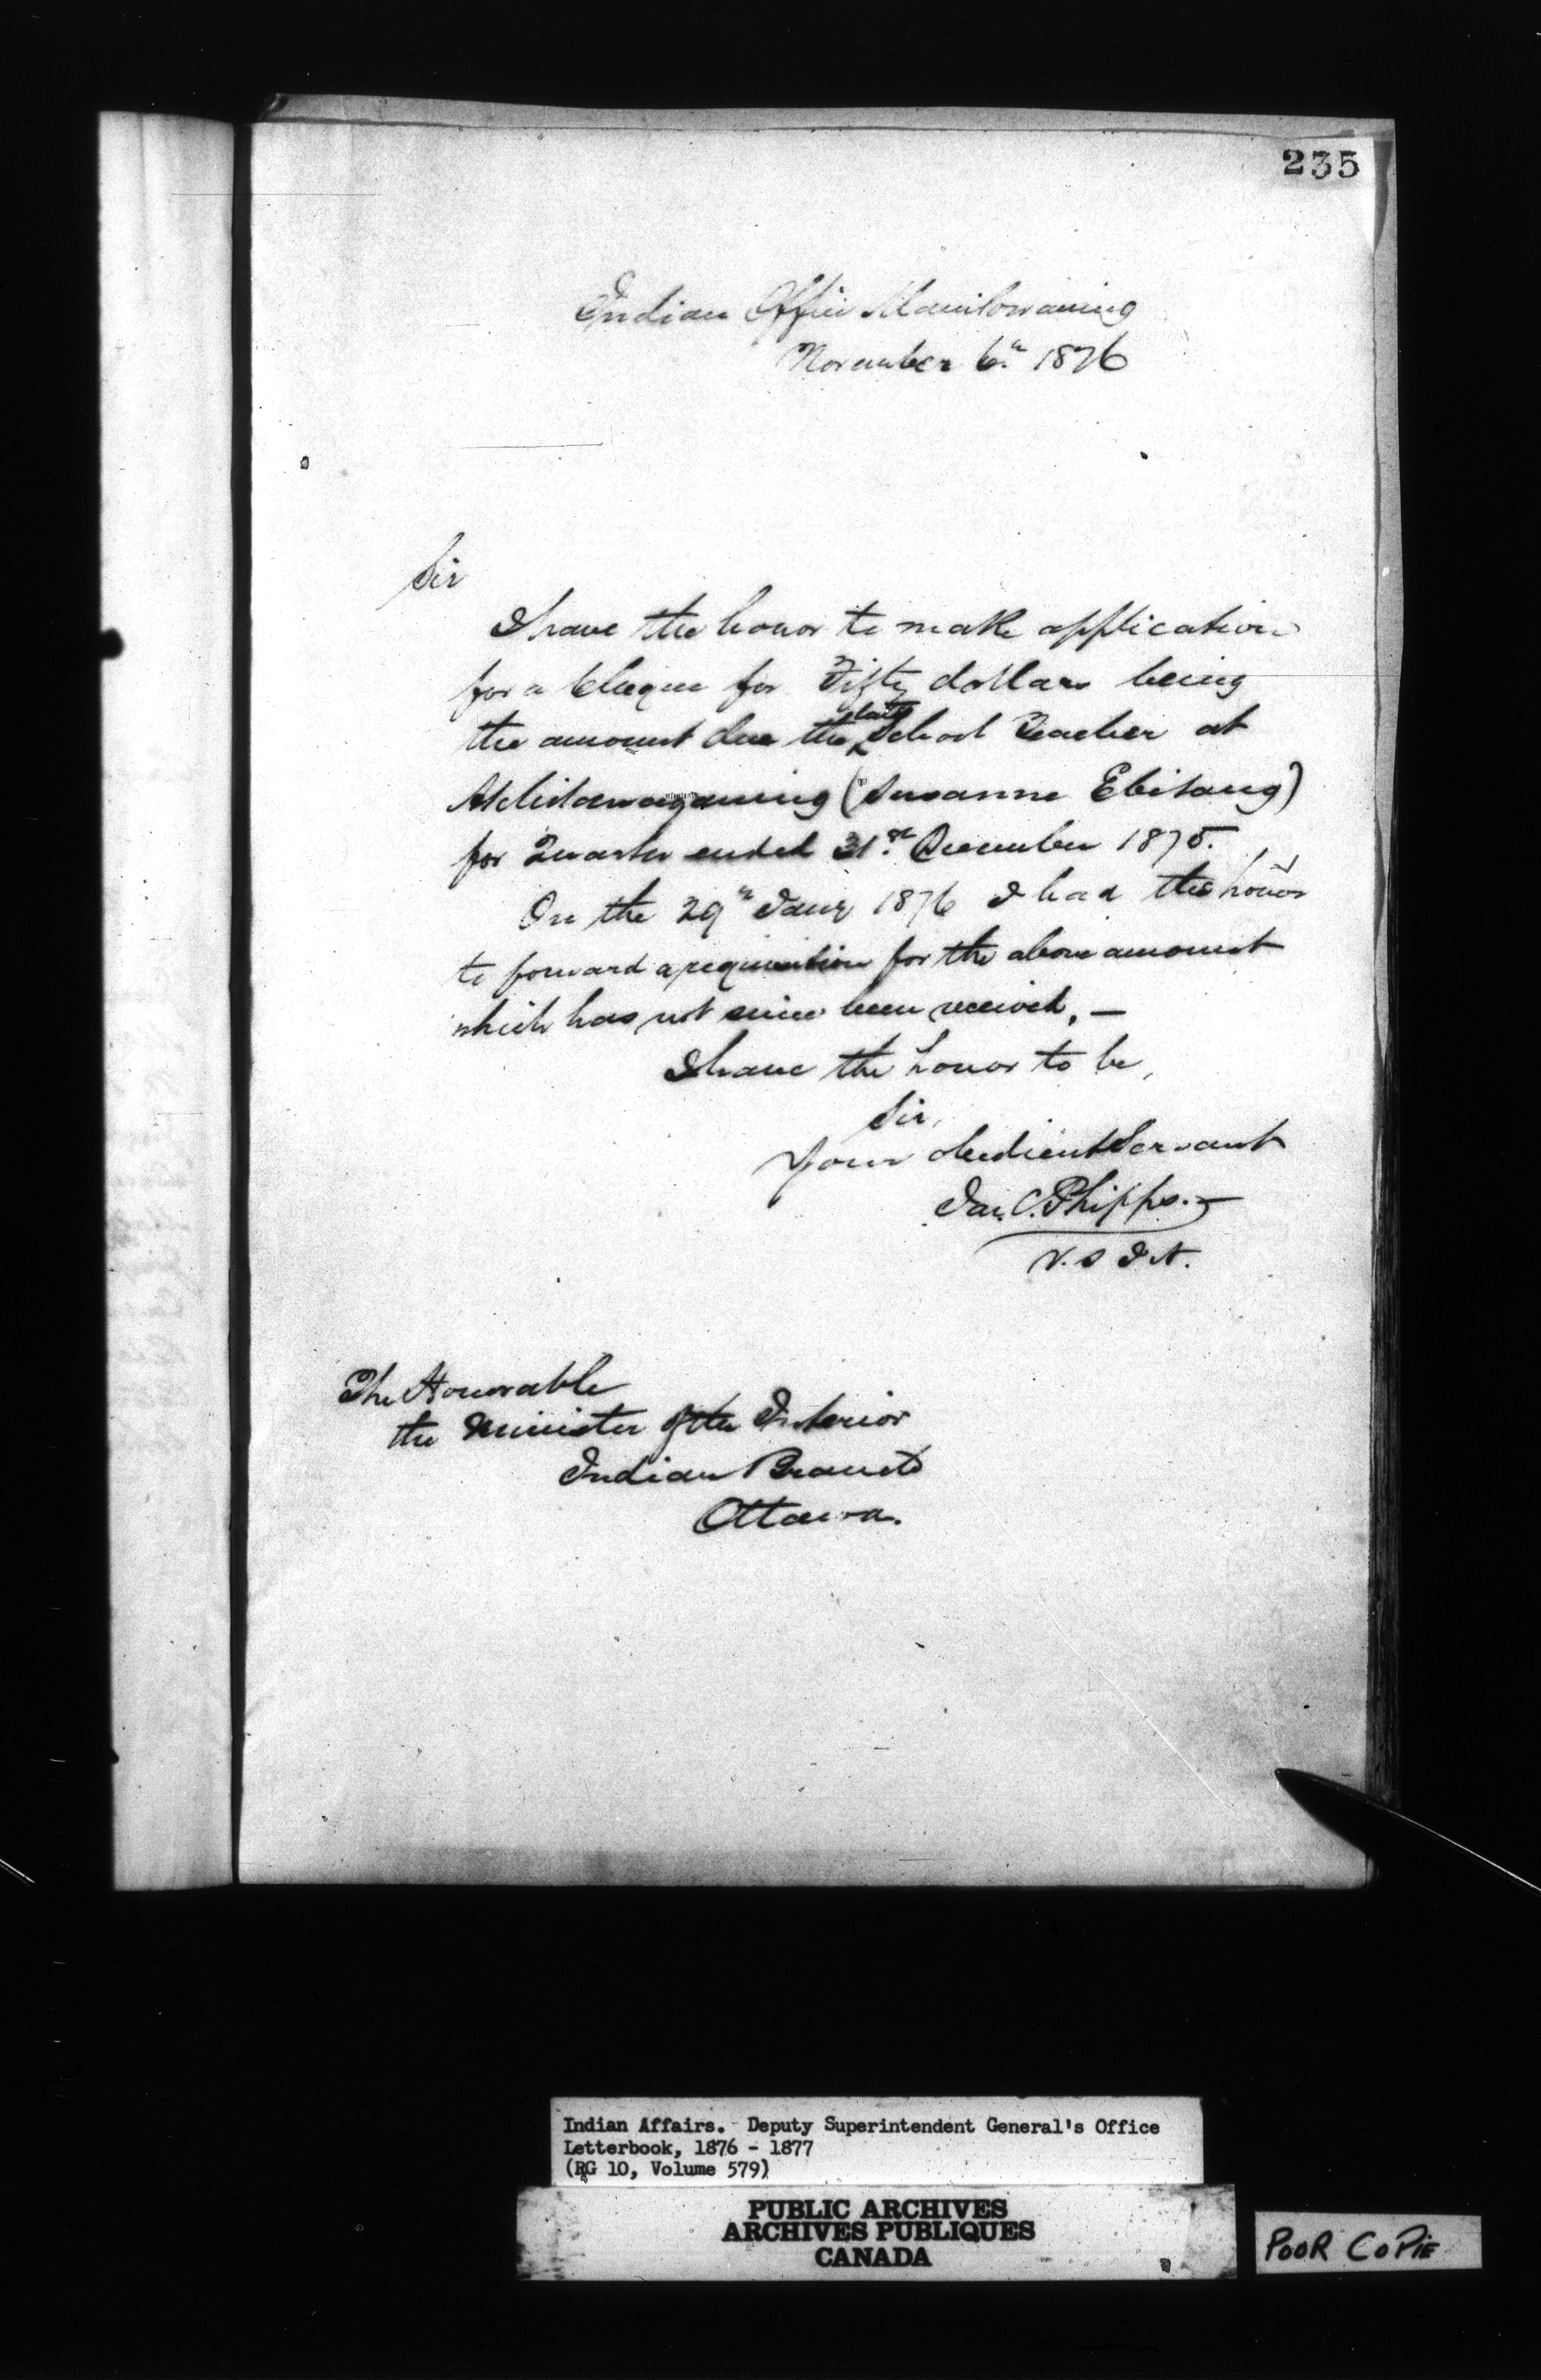 235
Indian Office Manitowaning
November 6th 1876
Sir
I have the honor to make application
for a Cheque for Fifty dollars being
the amount due the late School Teacher at
Atchitawaganing (Susanne Ebitang)
for Quarter ended 31st December 1875.
On the 29th Jany 1876 I had the honor
to forward a requisition for the above amount
which has not since been received. —
I have the honor to be,
Sir,
Your obedient Servant
Jas. C. Phipps. —
V. S I A.
The Honorable
the Minister of the Interior
Indian Branch
Ottawa.
Indian Affairs. Deputy Superintendent General's Office
Letterbook, 1876 - 1877
(RG 10, Volume 579)
PUBLIC ARCHIVES
ARCHIVES PUBLIQUES
CANADA
POOR COPIE